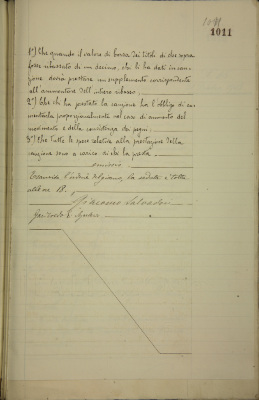 1011
1011
1º) Che quando il valore di borsa dei titoli di che sopra
fosse ribassato di un decimo, chi li ha dati in cau-
zione dovrà prestare un supplemento corrispondente
all'ammontare dell'intero ribasso.
2º) Che chi ha prestato la cauzione ha l'obbligo di au-
mentarla proporzionalmente nel caso di aumento del
movimento e della
3º) Che tutte le spese relative alla prestazione della
cauzione sono a carico di chi la presta
omissis
Esaurito l'ordine del giorno, la seduta è tolta
alle ore 18.
Giacomo Salvadori